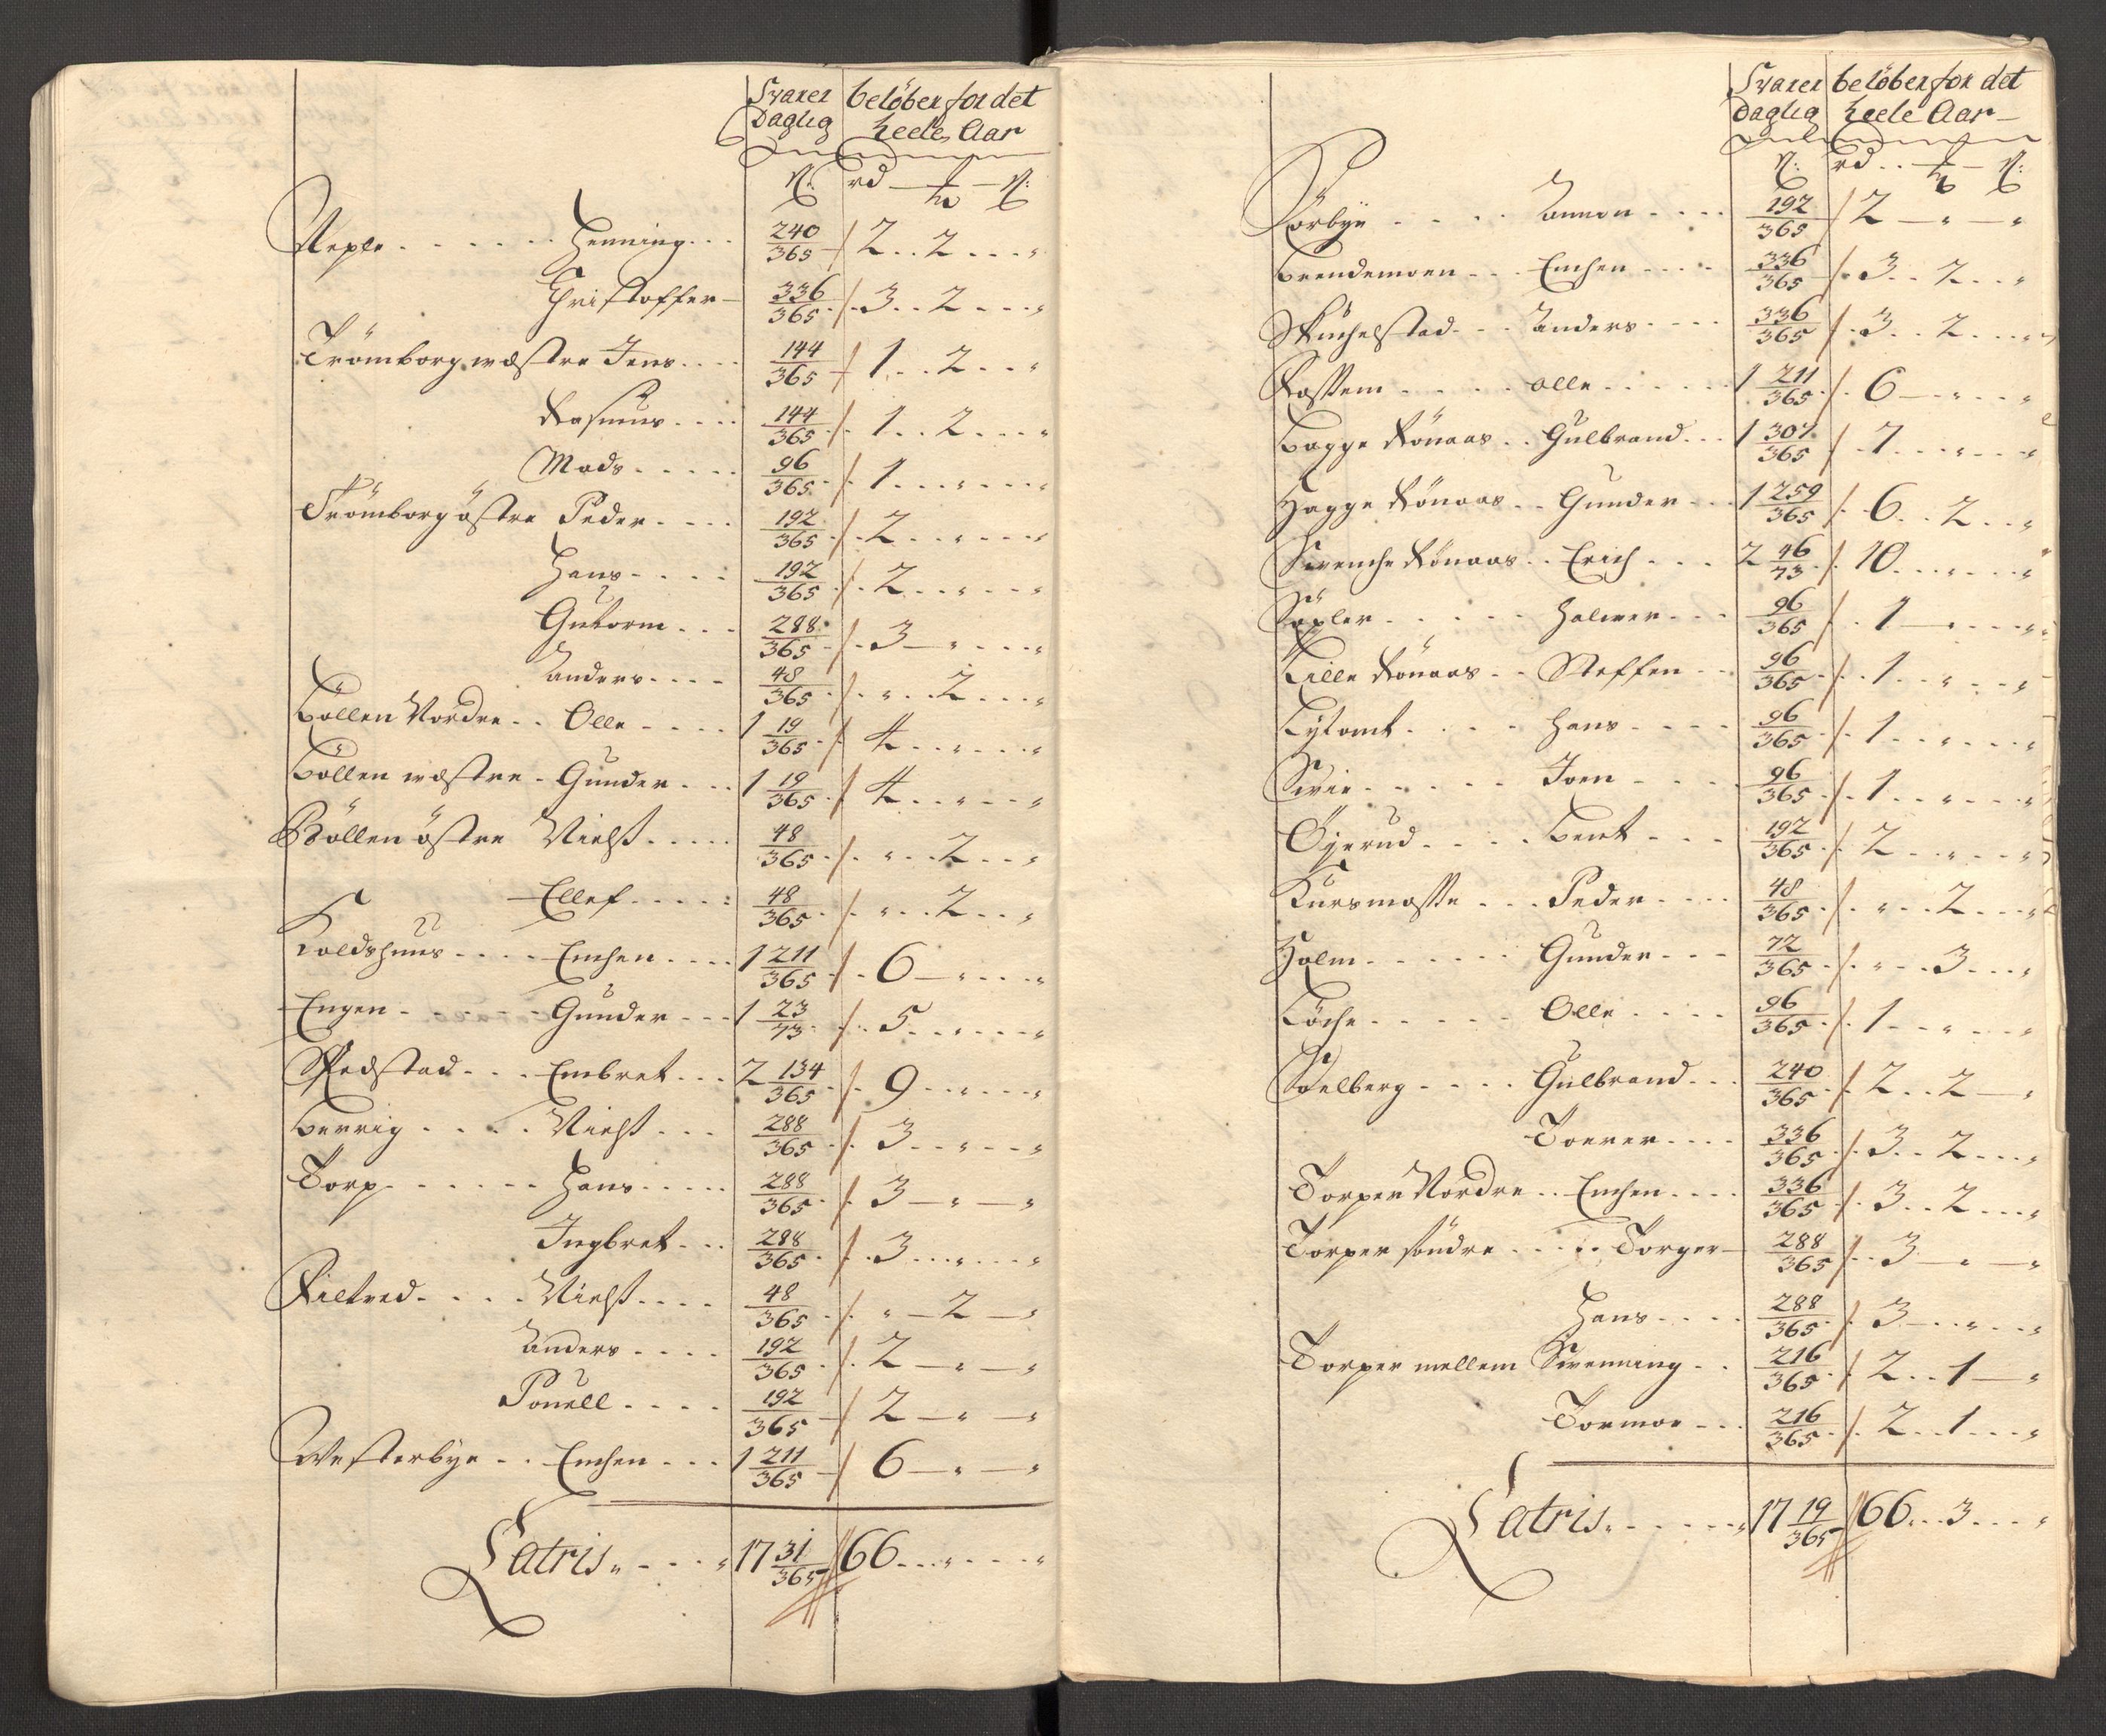 Svarer beløber for det
Daglig heele Aar
ß: rd ß:
Reple Henning 240/365 2 2 "
Christoffer 336/365 3 2 "
Trömborg westre Jens 144/365 1 2 "
Rasmus 144/365 1 2 "
Mads 96/365 1 " "
Trömborg östre Peder 192/365 2 " "
Hans 192/365 2 " "
Gutorm 288/365 3 " "
Anders 48/365 " 2 "
Böllen Nordre Olle 1 19/365 4 " "
Böllen westre Gunder 1 19/365 4 " "
Böllen östre Nielß 48/365 " 2 "
Ellef 48/365 " 2 "
Koldshuus Emhen 1 211/365 6 " "
Engen Gunder 1 23/73 5 " "
Embret 2 134/365 9 " "
Berrig Nielß 288/365 3 " "
Torp Hans 288/365 3 " "
Ingbret 288/365 3 " "
Nielß 48/365 " 2 "
Anders 192/365 2 " "
Pouell 192/365 2 " "
Westerbye Emhen 1 211/365 6 " "
Latris 17 31/365 66 " "
Svarer beløber for det
Daglig heele Aar
ß: rd ß:
Förbye Ammon 192/365 2 " "
Brendemoen Emhen 336/365 3 2 "
Anders 336/365 3 2 "
Fossem olle 1 211/365 6 " "
Bagge Rönaas Gulbrand 1 307/365 7 " "
Hagge Rönaas Gunder 1 259/365 6 2 "
Svenche Rönaas Erich 2 46/73 10 " "
Söpler Halwer 96/365 1 " "
Lille Rönaas Steffen 96/365 1 " "
Lytomt Hans 96/365 1 " "
Svie Joen 96/365 1 " "
Öjerud Bent 192/365 2 " "
Kursmosse Peder 48/365 " 2 "
Holm Gunder 72/365 " 3 "
Löche Olle 96/365 1 " "
Soelberg Gulbrand 240/365 2 2 "
Torer 336/365 3 2 "
Torper Nordre Emhen 336/365 3 2 "
Torper söndre Torger 288/365 3 " "
Hans 288/365 3 " "
Torper mellem Svenning 216/365 2 1 "
Tormoe 216/365 2 1 "
Latris 17 19/365 66 3 "